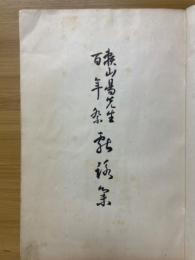 山先生
百年祭献詠集